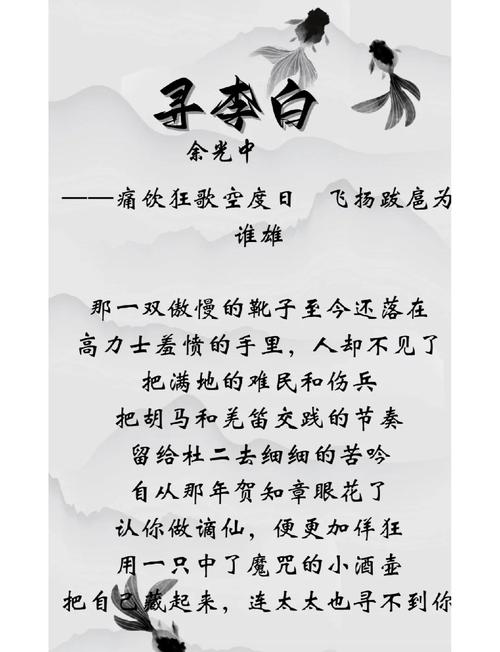 寻李白
余光中
——痛饮狂歌空度日 飞扬跋扈为
谁雄
那一双傲慢的靴子至今还落在
高力士羞愤的手里，人却不见了
把满地的难民和伤兵
把胡马和羌笛交践的节奏
留给杜二去细细的苦吟
自从那年贺知章眼花了
认你做谪仙，便更加佯狂
用一只中了魔咒的小酒壶
把自己藏起来，连太太也寻不到你